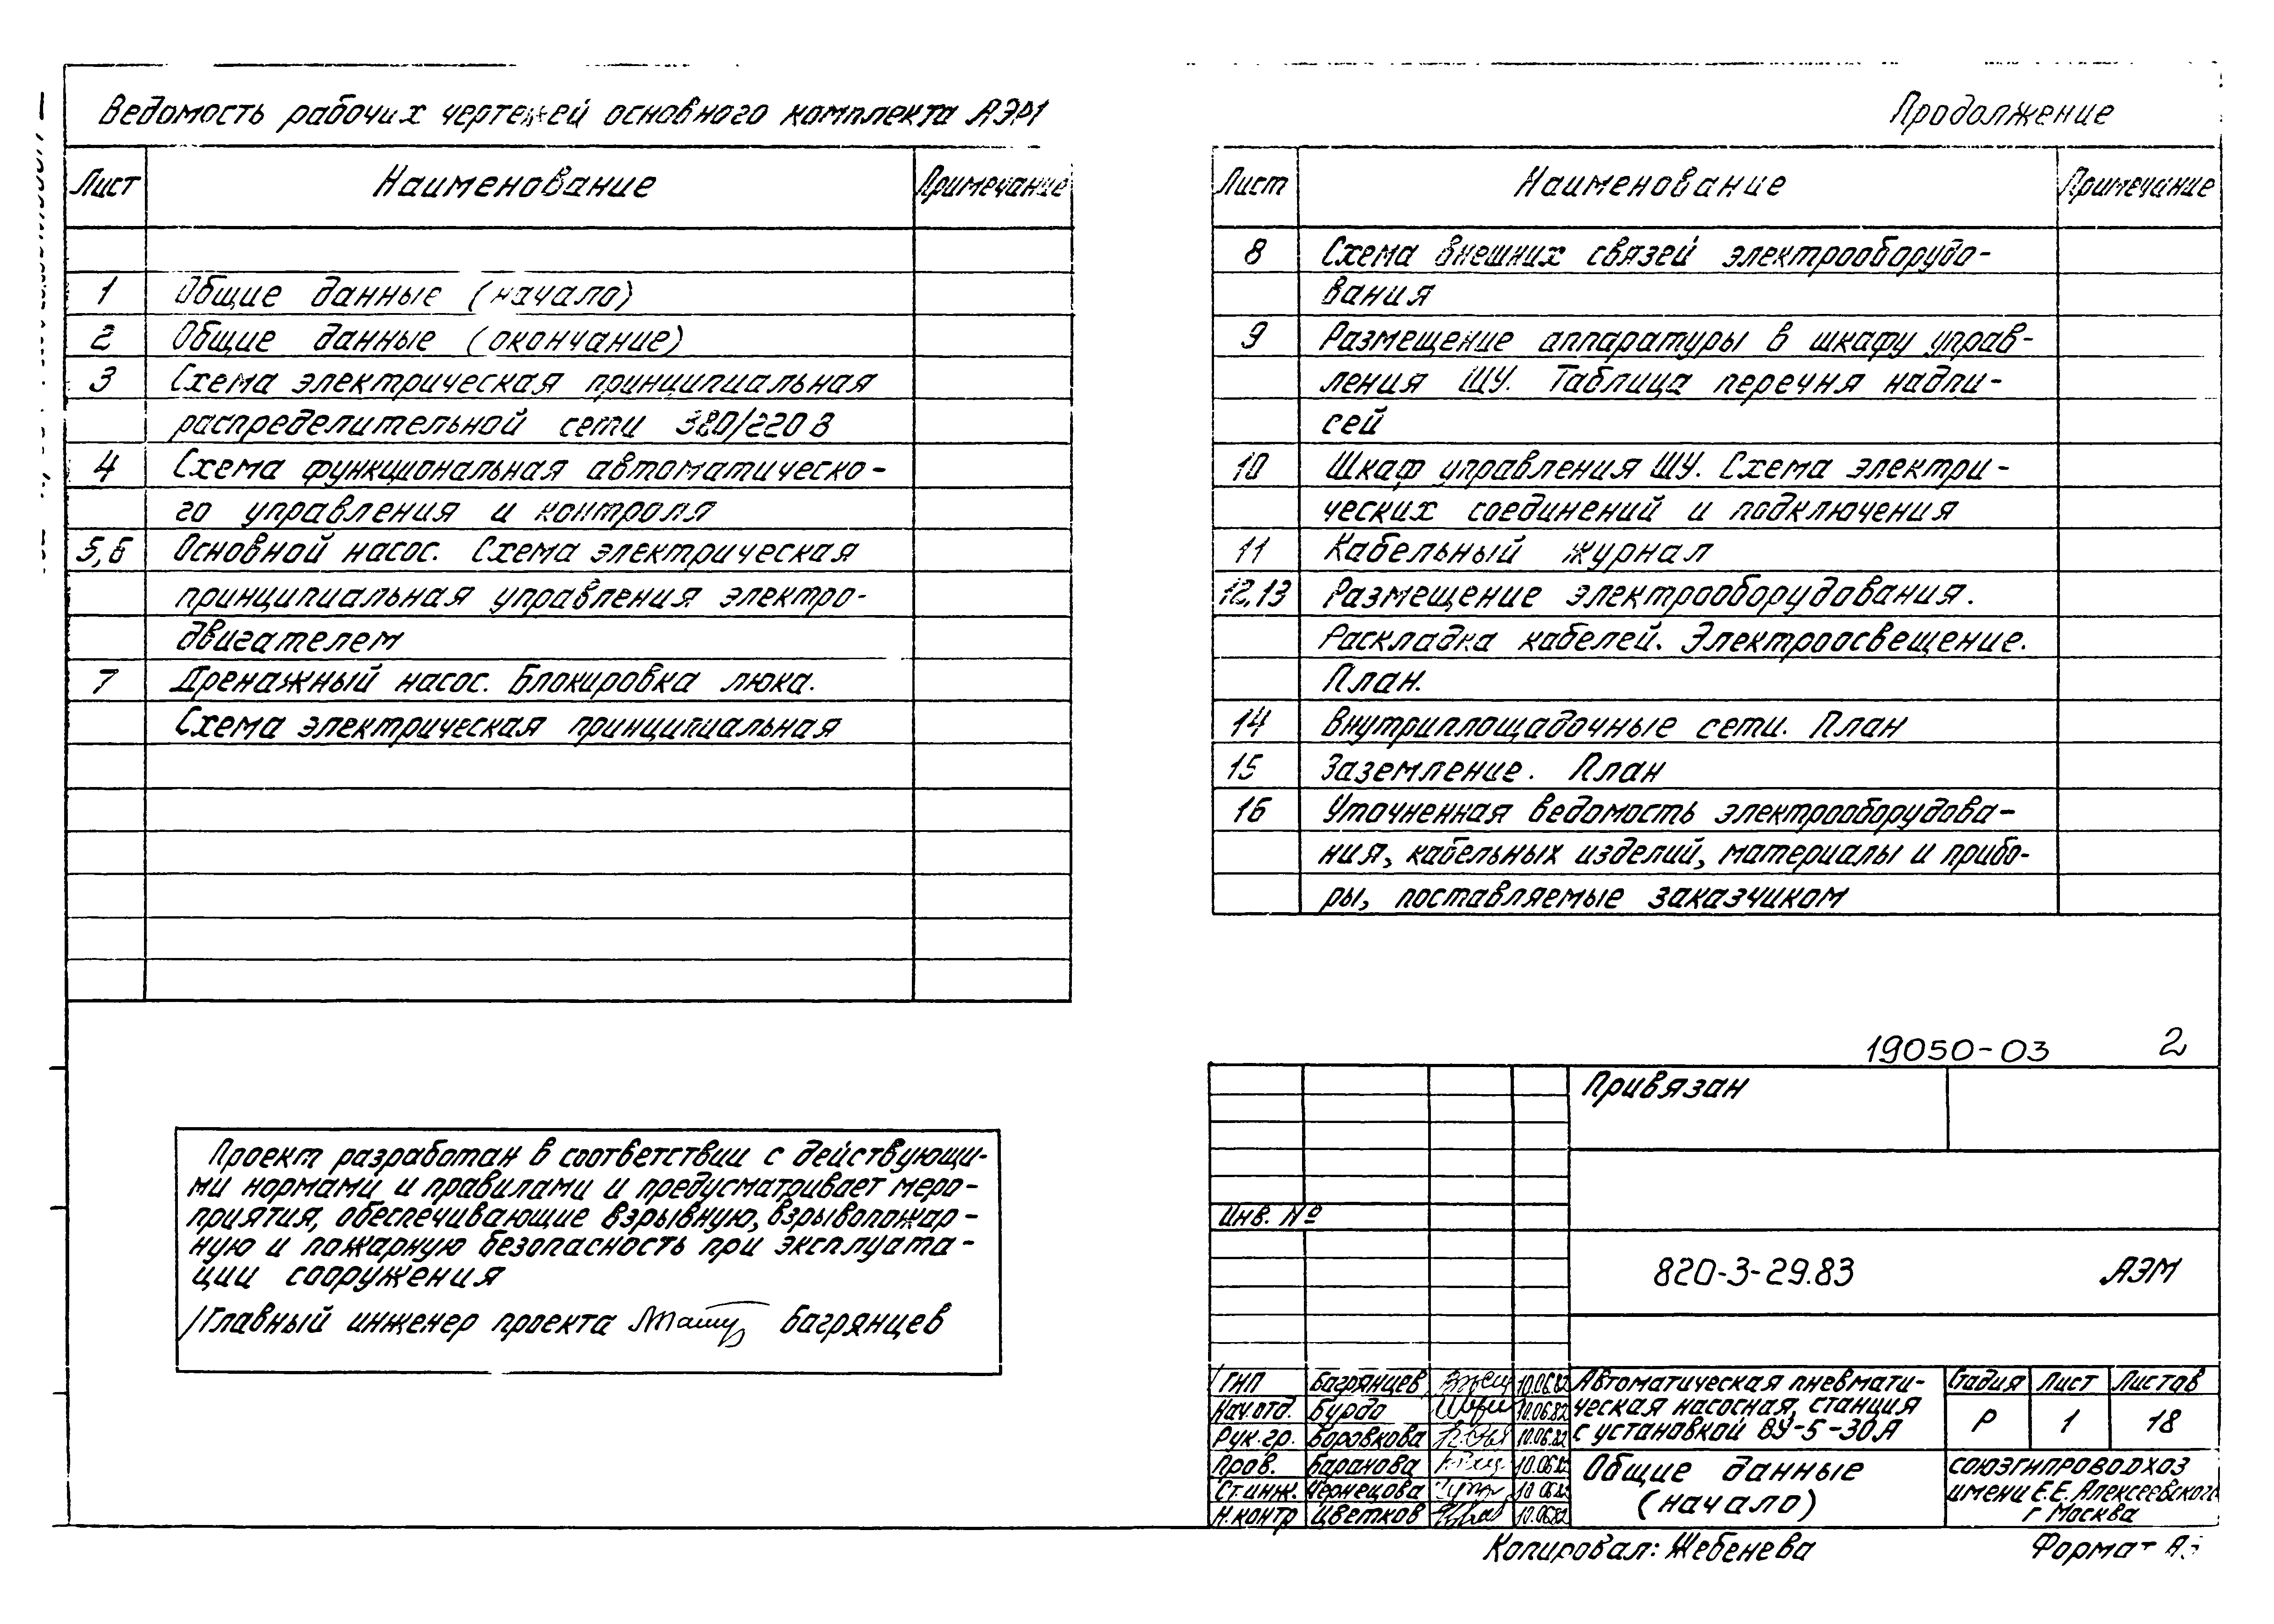 Ведомость рабочих чертежей основного комплекта АЭМ
Лист Наименование Примечание
1 Общие данные (начало)
2 Общие данные (окончание)
3 Схема электрическая принципиальная
распределительной сети 380/220 В
4 Схема функциональная автоматическо-
го управления и контроля
5,6 Основной насос. Схема электрическая
принципиальная управления электро-
двигателем
7 Дренажный насос. Блокировка люка.
Схема электрическая принципиальная
Продолжение
Лист Наименование Примечание
8 Схема внешних связей электрооборудо-
вания
9 Размещение аппаратуры в шкафу управ-
ления ШУ. Таблица перечня надпи-
сей
10 Шкаф управления ШУ. Схема электри-
ческих соединений и подключения
11 Кабельный журнал
12,13 Размещение электрооборудования.
Раскладка кабелей. Электроосвещение.
План.
14 Внутриплощадочные сети. План
15 Заземление. План
16 Уточненная ведомость электрооборудова-
ния, кабельных изделий, материалы и прибо-
ры, поставляемые заказчиком
Проект разработан в соответствии с действующи-
ми нормами и правилами и предусматривает меро-
приятия, обеспечивающие взрывную, взрывопожар-
ную и пожарную безопасность при эксплуата-
ции сооружения
Главный инженер проекта Багрянцев
19050-03 2
Привязан
Инв. №
820-3-29.83 АЭМ
ГИП Багрянцев 10.06.82
Нач.отд. Бурдо 10.06.82
Рук.гр. Боровкова 10.06.82
Пров. Баранова 10.06.82
Ст.инж. Чернецова 10.06.82
Н.контр Цветков 10.06.82
Автоматическая пневмати-
ческая насосная станция
с установкой ВУ-5-30А
Стадия Лист Листов
Р 1 18
Общие данные
(начало)
СОЮЗГИПРОВОДХОЗ
имени Е.Е. Алексеевского
г Москва
Копировал: Жебенева
Формат А3